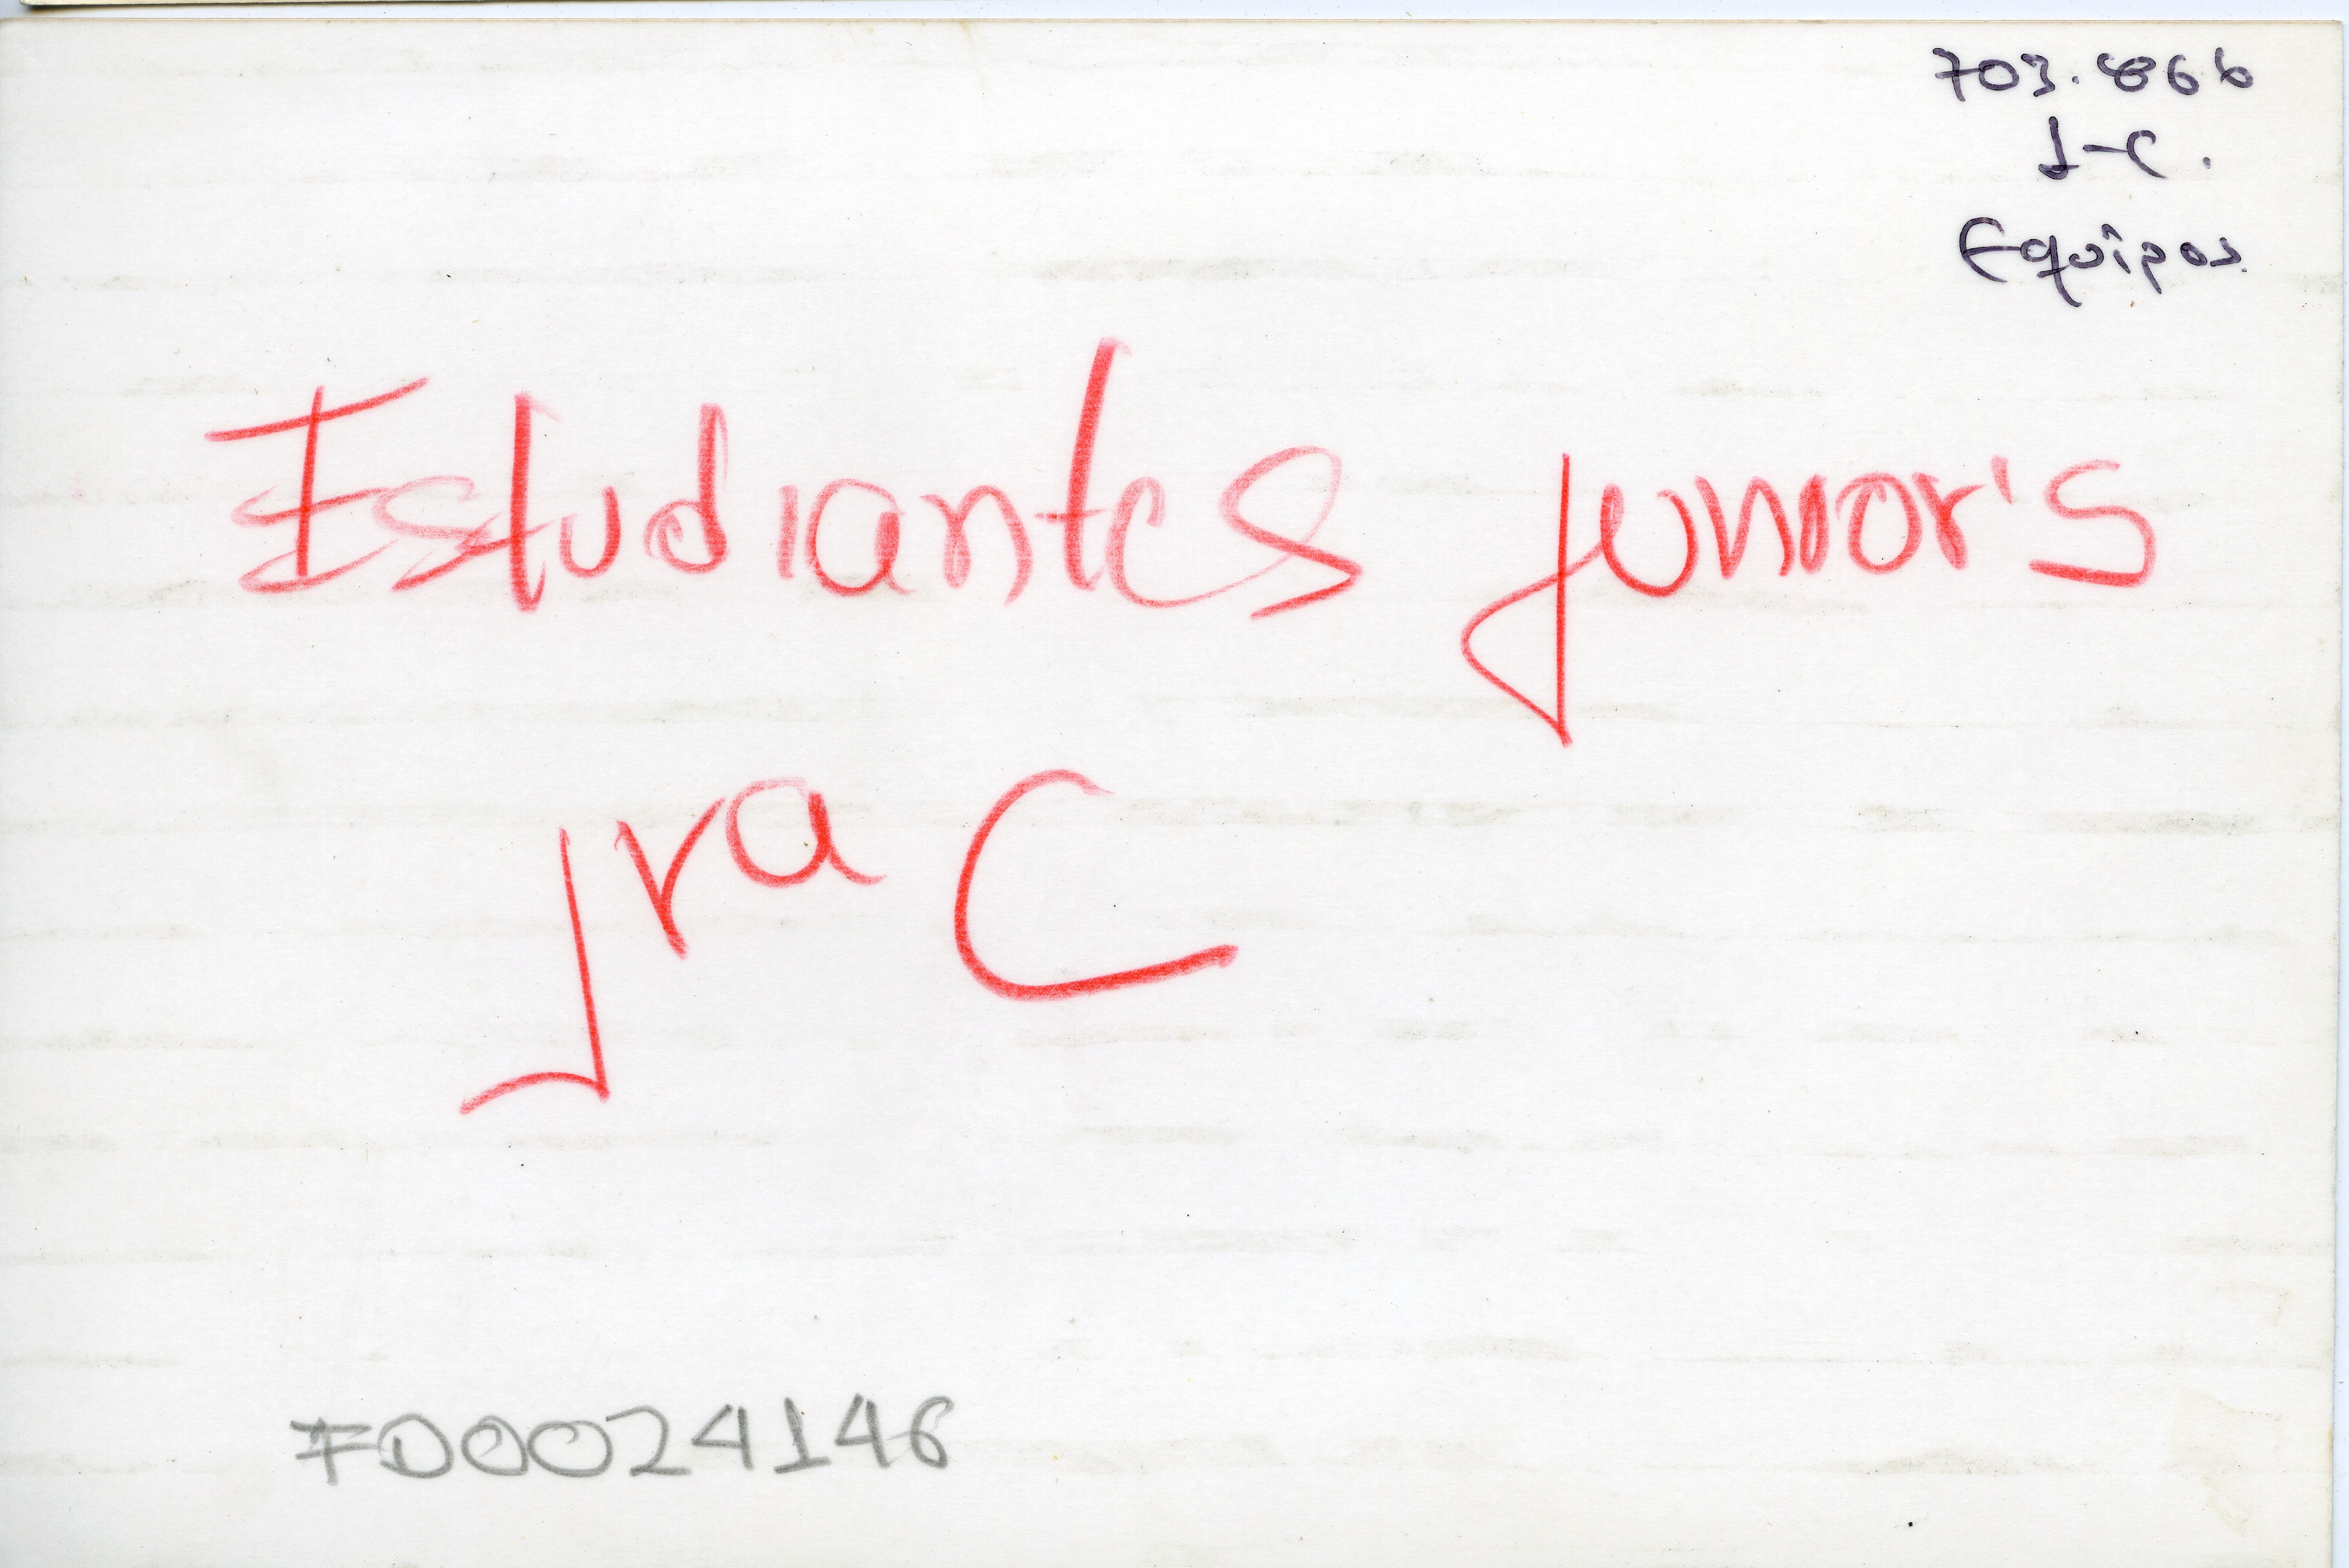 703.866
1-C.
Equipos
Estudiantes junior's
1ra C
FD0024146